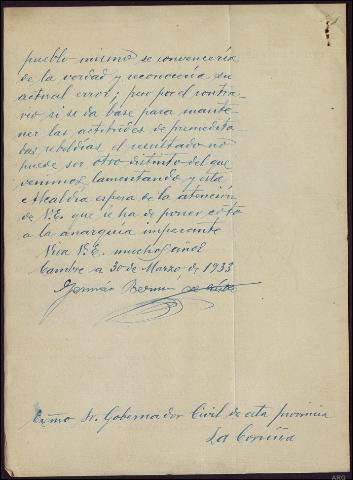 pueblo mismo se convencería
de la verdad y reconocería su
actual error; pero por el contra-
rio, si se da base para mante-
ner las actitudes de premedita-
das rebeldías, el resultado no
puede ser otro distinto del que
venimos lamentando y esta
Alcaldía espera de la atención
de V.E. que le ha de poner coto
a la anarquía imperante
Viva V.E. muchos años
Cambre a 30 de Marzo, de 1933
Germán
Exmo Sr. Gobernador Civil de esta provincia
La Coruña
ARG